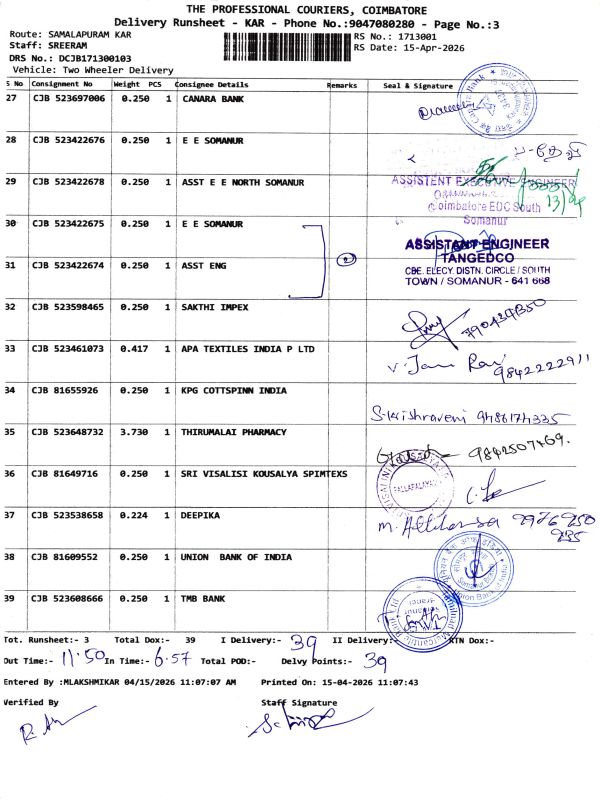 THE PROFESSIONAL COURIERS, COIMBATORE
Delivery Runsheet - KAR - Phone No.:9047080280 - Page No.:3
Route: SAMALAPURAM KAR
RS No.: 1713001
Staff: SREERAM
RS Date: 15-Apr-2026
DRS No.: DCJB171300103
Vehicle: Two Wheeler Delivery
S No Consignment No Weight PCS Consignee Details Remarks Seal & Signature
27 CJB 523697006 0.250 1 CANARA BANK
28 CJB 523422676 0.250 1 E E SOMANUR
29 CJB 523422678 0.250 1 ASST E E NORTH SOMANUR
ASSISTENT EXECUTIVE ENGINEER
Coimbatore EDC South
Somanur
30 CJB 523422675 0.250 1 E E SOMANUR
31 CJB 523422674 0.250 1 ASST ENG
2
ASSISTANT ENGINEER
TANGEDCO
CBE. ELECY. DISTN. CIRCLE / SOUTH
TOWN / SOMANUR - 641 668
32 CJB 523598465 0.250 1 SAKTHI IMPEX
33 CJB 523461073 0.417 1 APA TEXTILES INDIA P LTD
9842222911
34 CJB 81655926 0.250 1 KPG COTTSPINN INDIA
S. Krishnaveni 9486174335
35 CJB 523648732 3.730 1 THIRUMALAI PHARMACY
9842507469.
36 CJB 81649716 0.250 1 SRI VISALISI KOUSALYA SPIMTEXS
37 CJB 523538658 0.224 1 DEEPIKA
38 CJB 81609552 0.250 1 UNION BANK OF INDIA
39 CJB 523608666 0.250 1 TMB BANK
Tot. Runsheet:- 3 Total Dox:- 39 I Delivery:- 39 II Delivery:- RTN Dox:-
Out Time:- 11.50 In Time:- 6.57 Total POD:- Delvy Points:- 39
Entered By :MLAKSHMIKAR 04/15/2026 11:07:07 AM Printed On: 15-04-2026 11:07:43
Verified By Staff Signature